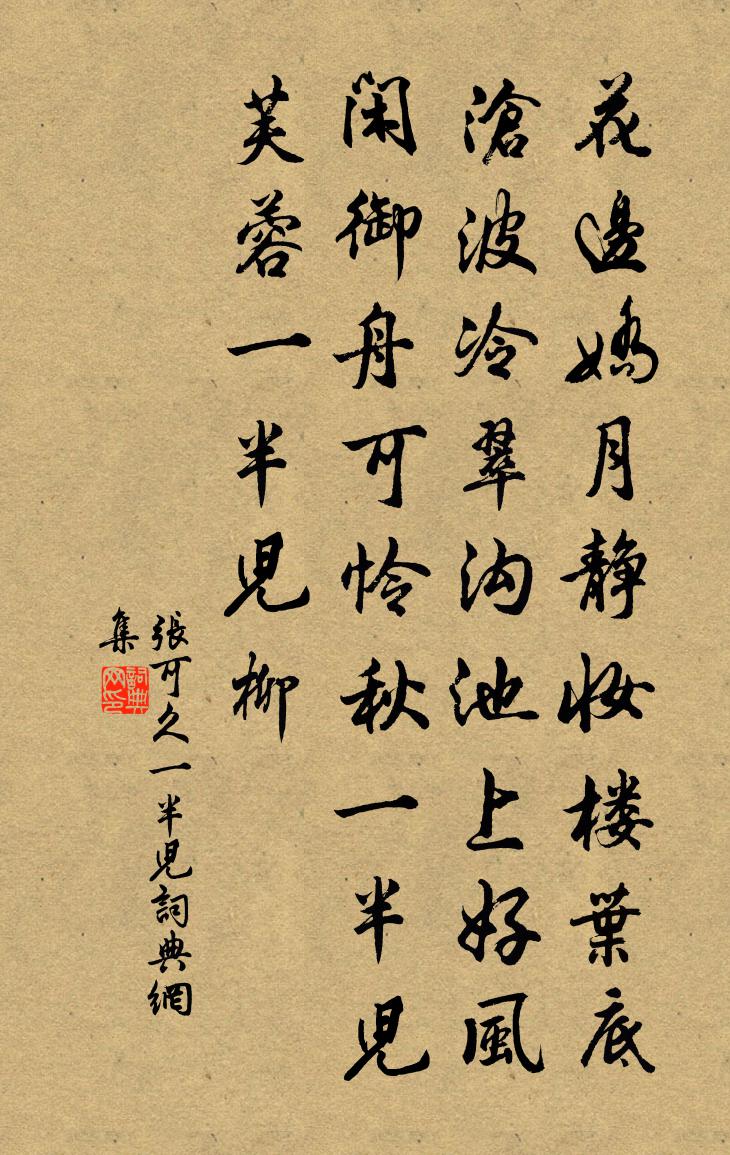 花邊嬌月静妝楼葉底
滄波冷翠沟池上好風
閑御舟可怜秋一半兒
芙蓉一半兒柳
張可久一半兒詞典網
集
詞典网印